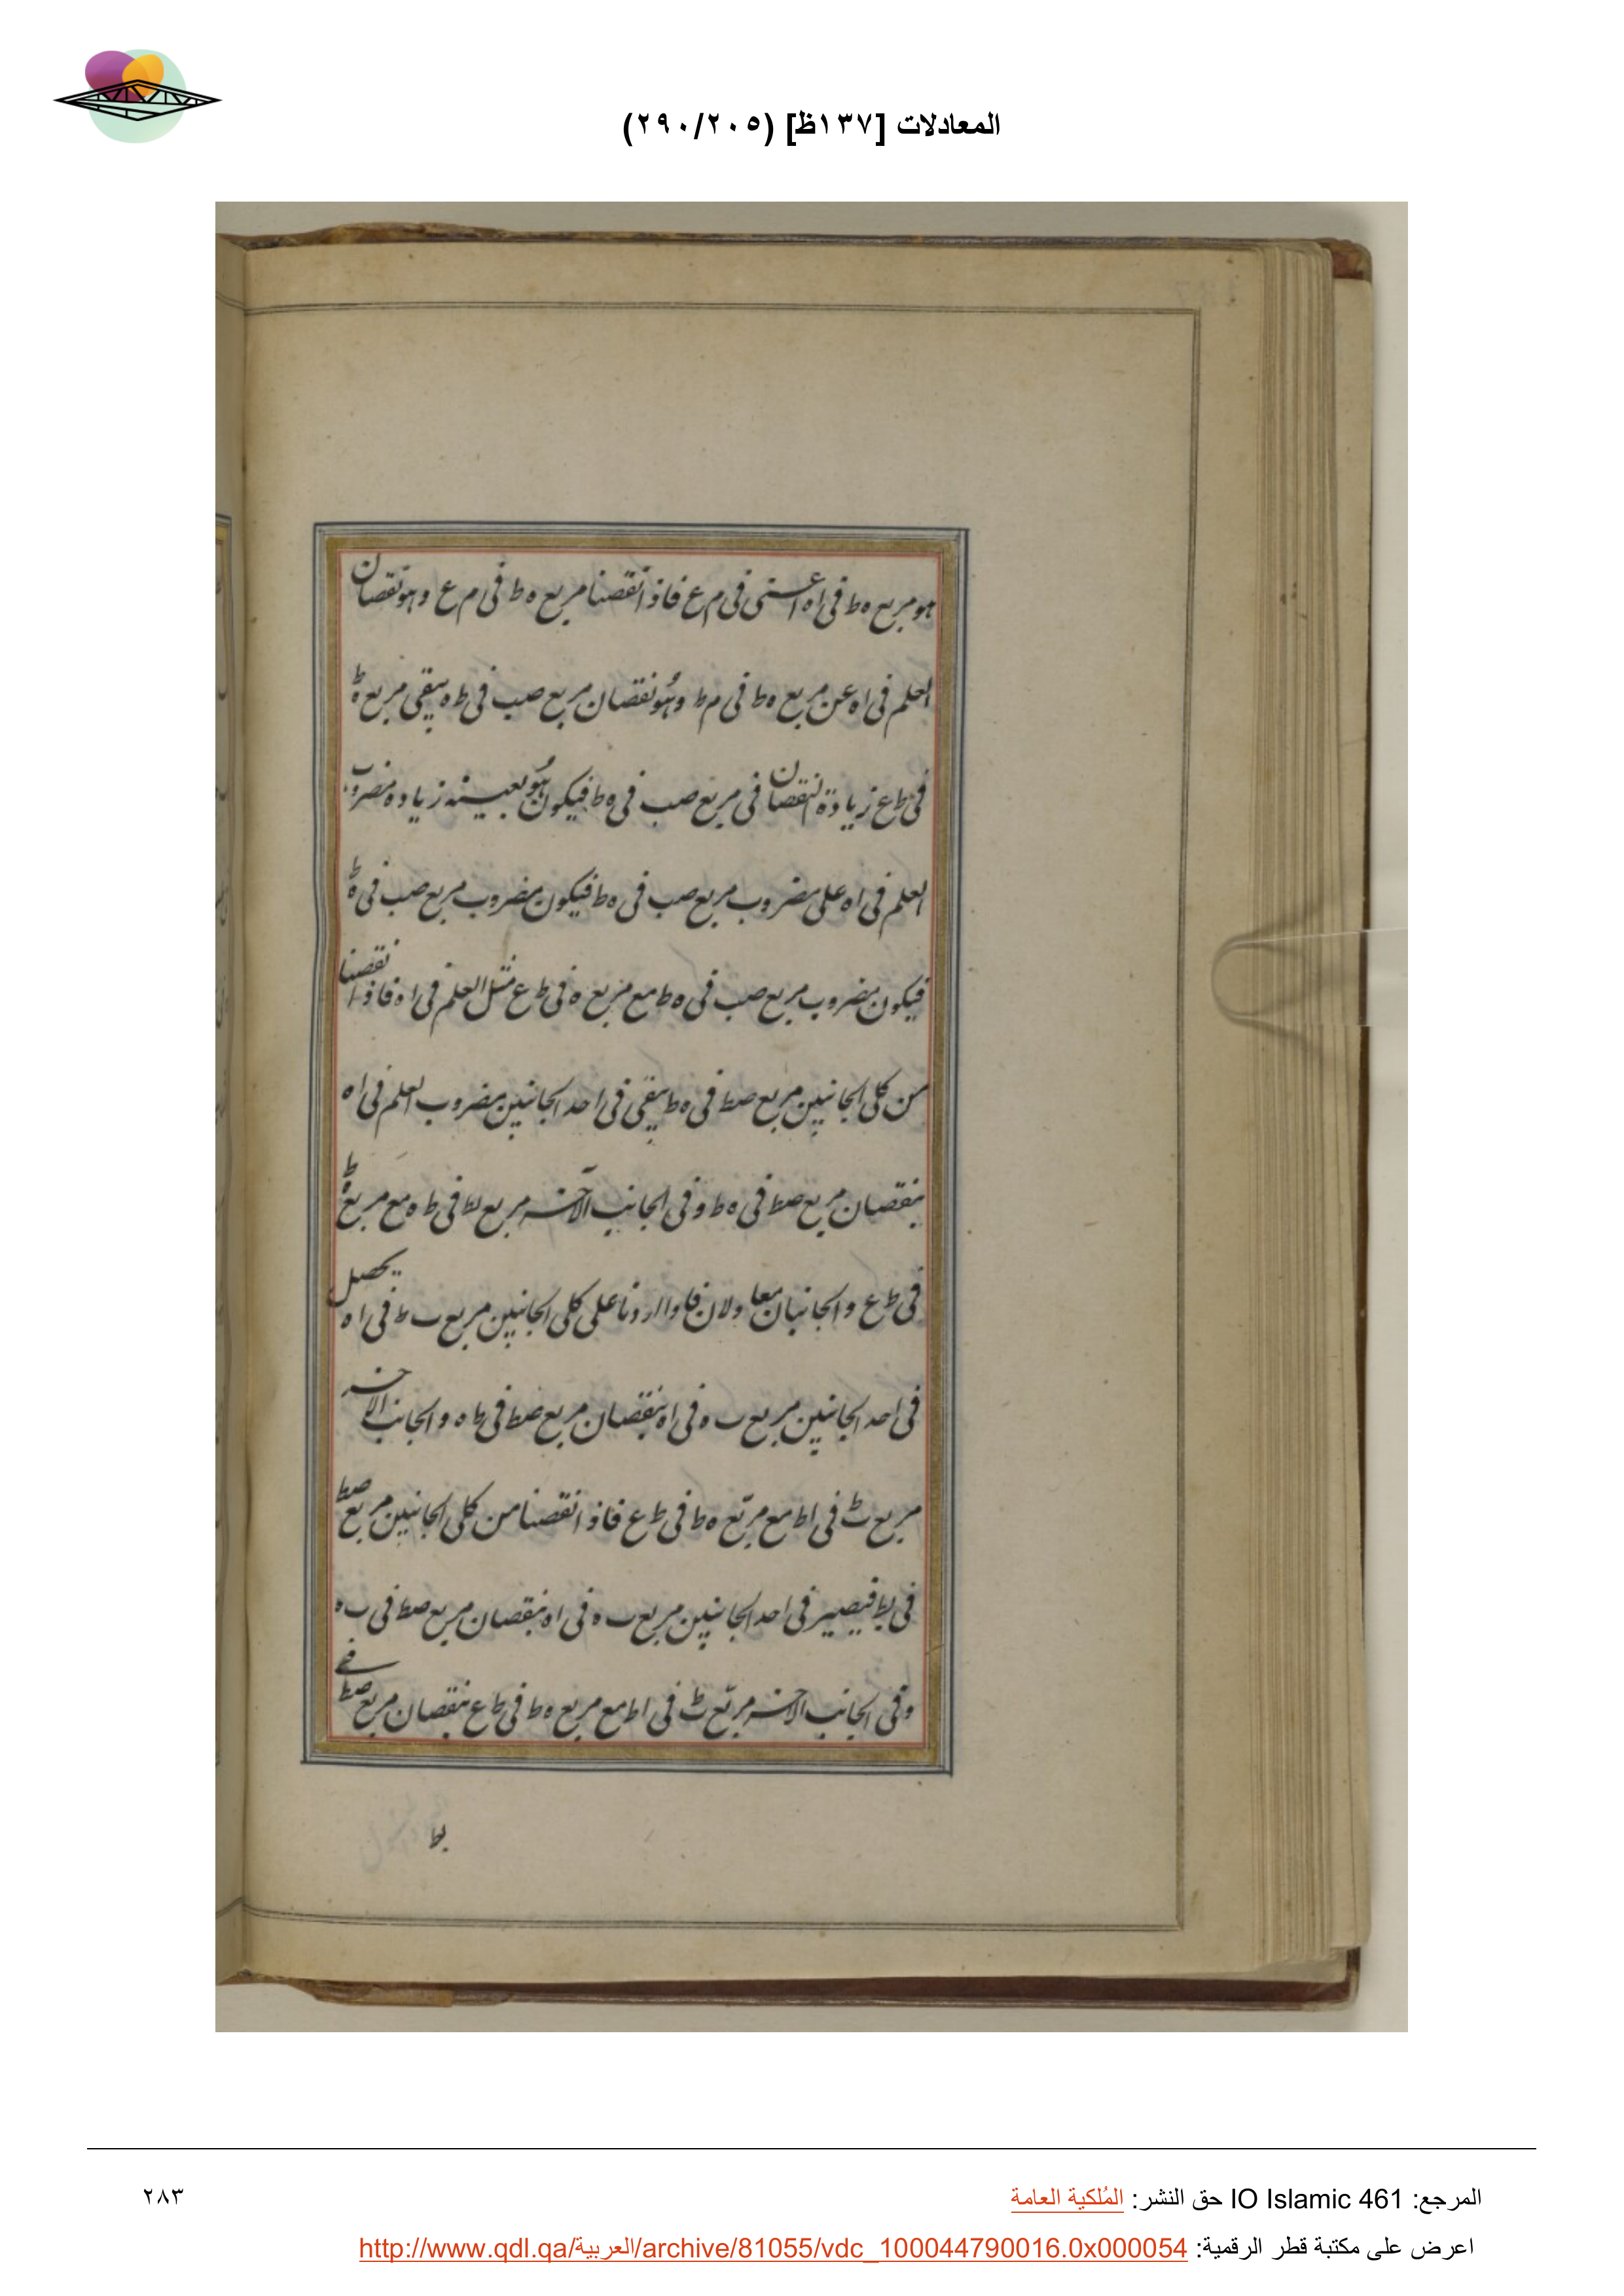 المعادلات [١٣٧ظ] (٢٩٠/٢٠٥)
هو مربع ه ط فى اه اعنى فى م ع فاذا نقصنا مربع ه ط فى م ع وهو نقصان
العلم فى اه عن مربع ه ط فى م ط وهو نقصان مربع صب فى ط ه يبقى مربع ه ط
فى ط ع زيادة النقصان فى مربع صب فى ه ط فيكون هو بعينه زيادة مضروب
العلم فى اه على مضروب مربع صب فى ه ط فيكون مضروب مربع صب فى ه ط
فيكون مضروب مربع صب فى ه ط مع مربع ه فى ط ع مثل العلم فى اه فاذا نقصنا
من كلى الجانبين مربع صط فى ه ط يبقى فى احد الجانبين مضروب العلم فى اه
بنقصان مربع صط فى ه ط وفى الجانب الآخر مربع بط فى ط ه مع مربع ه ط
فى ط ع والجانبان معا ولان فاوا اردنا على كلى الجانبين مربع ب ط فى اه يحصل
فى احد الجانبين مربع ب ه فى اه بنقصان مربع صط فى ط ه والجانب الاخر
مربع ب ط فى اط مع مربع ه ط فى ط ع فاذا نقصنا من كلى الجانبين مربع صط
فى بط فيصير فى احد الجانبين مربع ب ه فى اه بنقصان مربع صط فى ب ه
وفى الجانب الاخر مربع ب ط فى اط مع مربع ه ط فى ط ع بنقصان مربع صط فى
بط
المرجع: IO Islamic 461 حق النشر: المُلكية العامة
٢٨٣
اعرض على مكتبة قطر الرقمية: http://www.qdl.qa/العربية/archive/81055/vdc_100044790016.0x000054